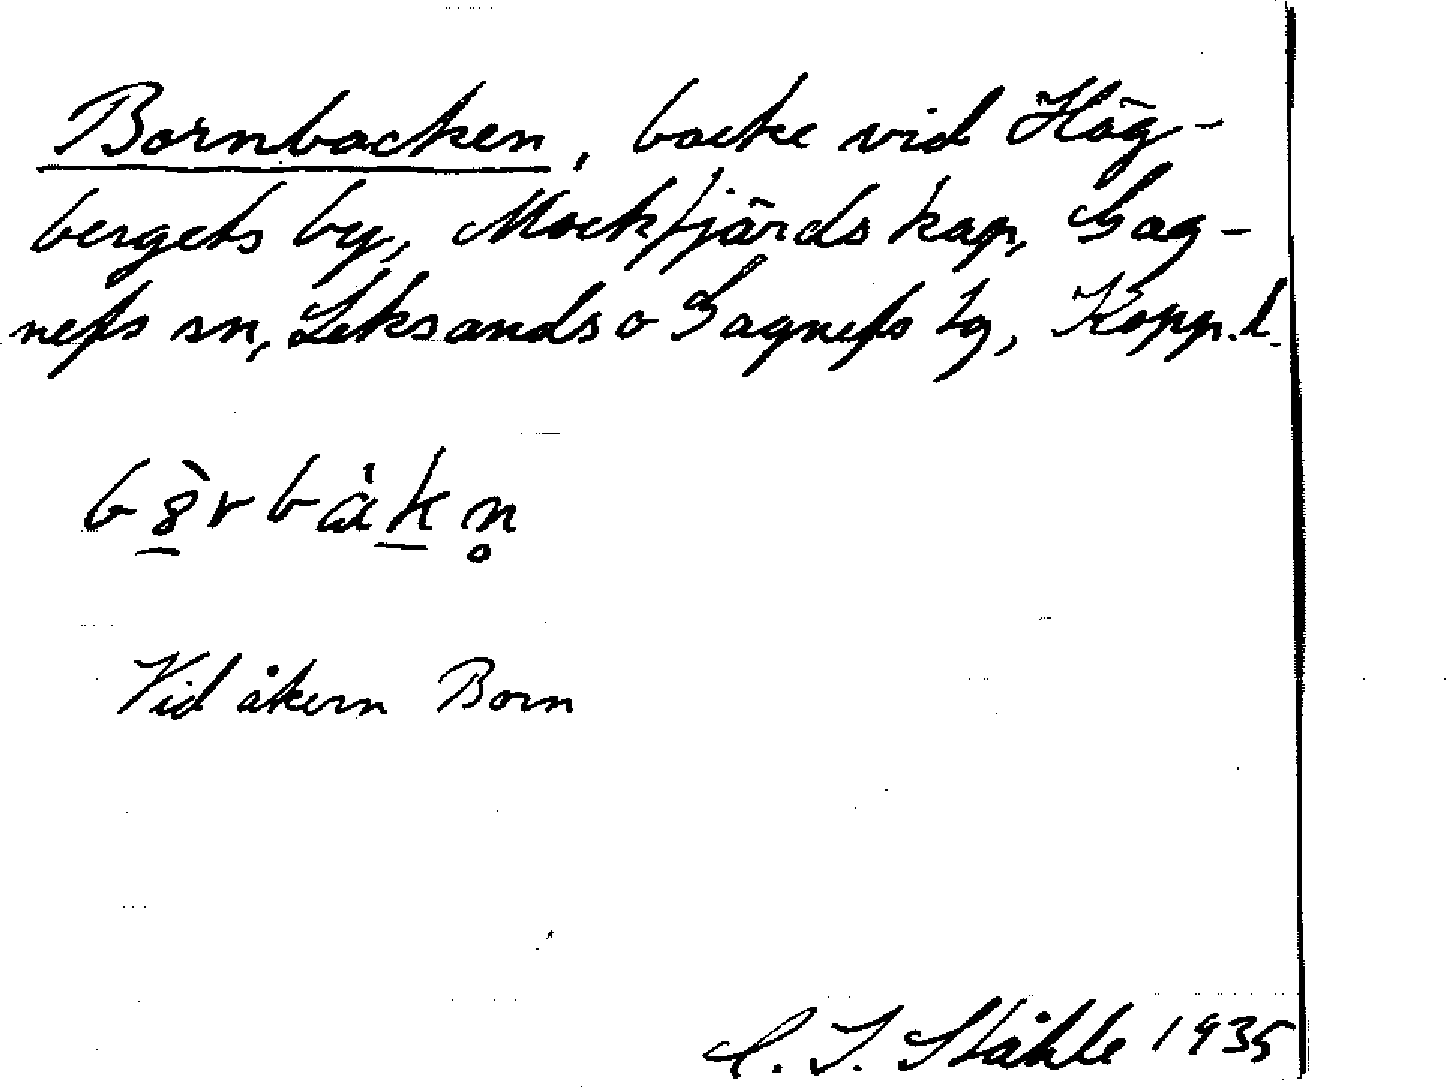 Bornbacken, backe vid Hög-
bergets by, Mockfjärds kap, Gag-
nefs sn, Leksands o Gagnefs tg, Kopp. l.
bo̱̊̀rbàḵn̥
Vid åkern Born
C. I. Ståhle 1935